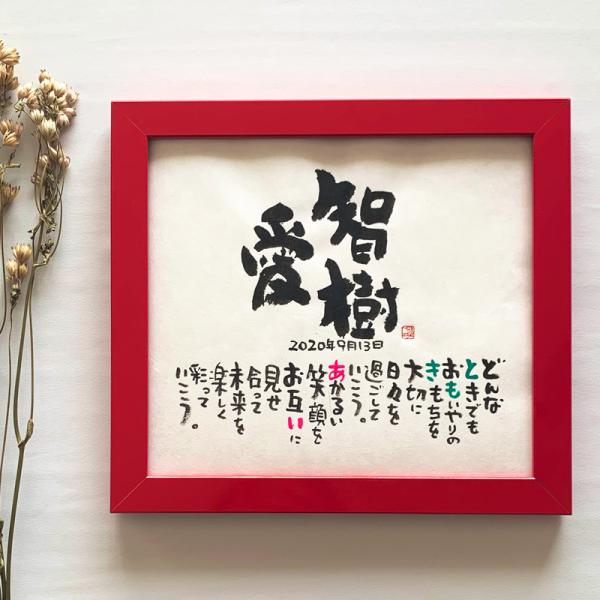 智樹
愛
2020年9月13日
どんな
ときでも
おもいやりの
きもちを
大切に
日々を
過ごして
いこう。
あかるい
笑顔を
お互いに
見せ
合って
未来を
楽しく
彩って
いこう。